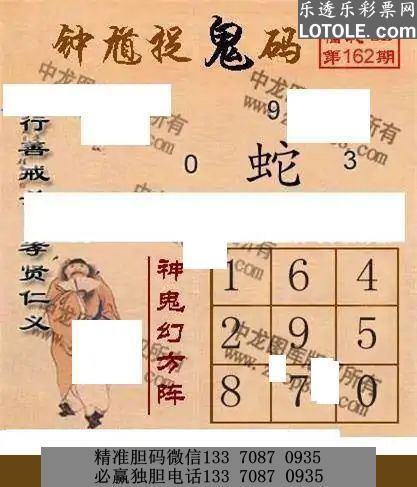 乐透乐彩票网
LOTOLE.COM
钟馗捉鬼码
第162期
9
0 蛇 3
行善戒
孝贤仁义
神鬼幻方阵
1 6 4
2 9 5
8 7 0
精准胆码微信133 7087 0935
必赢独胆电话133 7087 0935